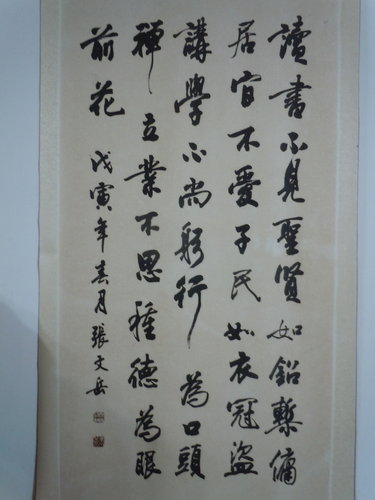 讀書不見聖賢如鉛槧傭
居官不愛子民如衣冠盜
講學不尚躬行為口頭
禪立業不思種德為眼
前花
戊寅年春月張文岳